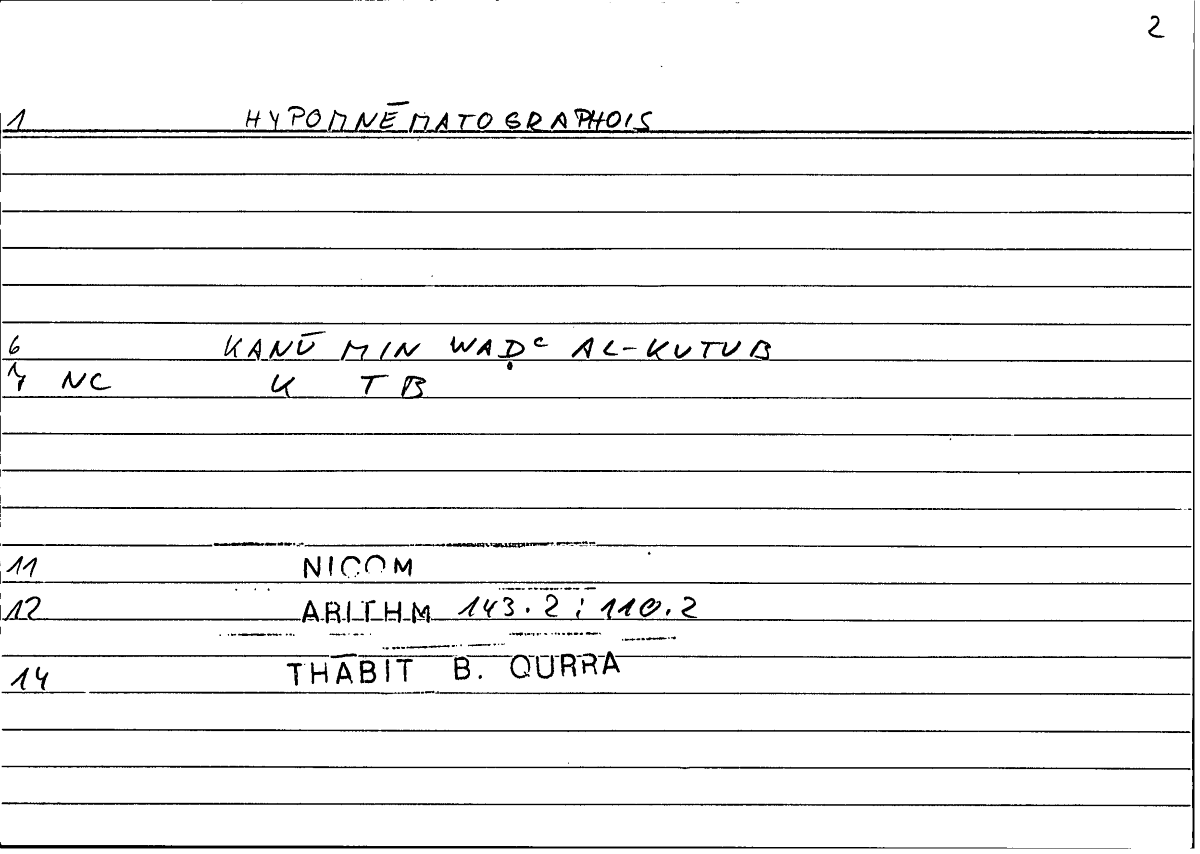 2
1 HYPOMNĒMATOGRAPHOIS
6 KANŪ MIN WAḌᶜ AL-KUTUB
7 NC K TB
11 NICOM
12 ARITHM 143.2; 110.2
14 THĀBIT B. QURRA